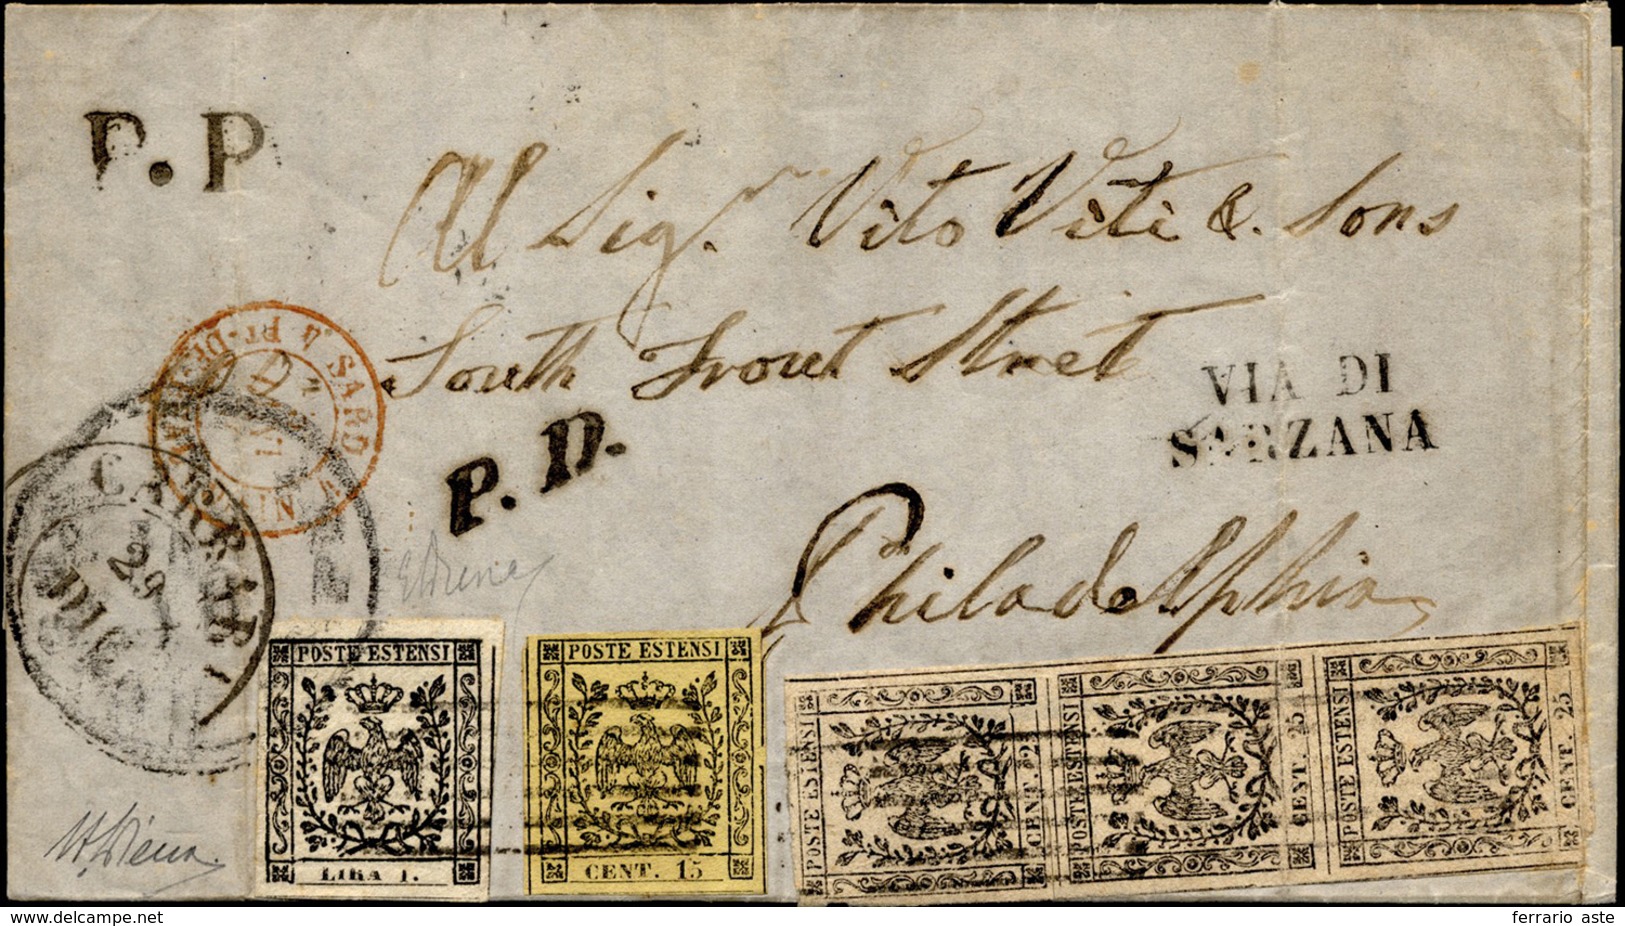 P. P
Al Sig.r Vito Viti & Sons
South Front Street
VIA DI
SARZANA
P. D.
Philadelphia
SARD.
CARRARA
29
DIC
POSTE ESTENSI
LIRA 1.
POSTE ESTENSI
CENT. 15
POSTE ESTENSI
CENT. 2
POSTE ESTENSI
CENT. 25
POSTE ESTENSI
CENT. 25
www.delcampe.net
ferrario aste